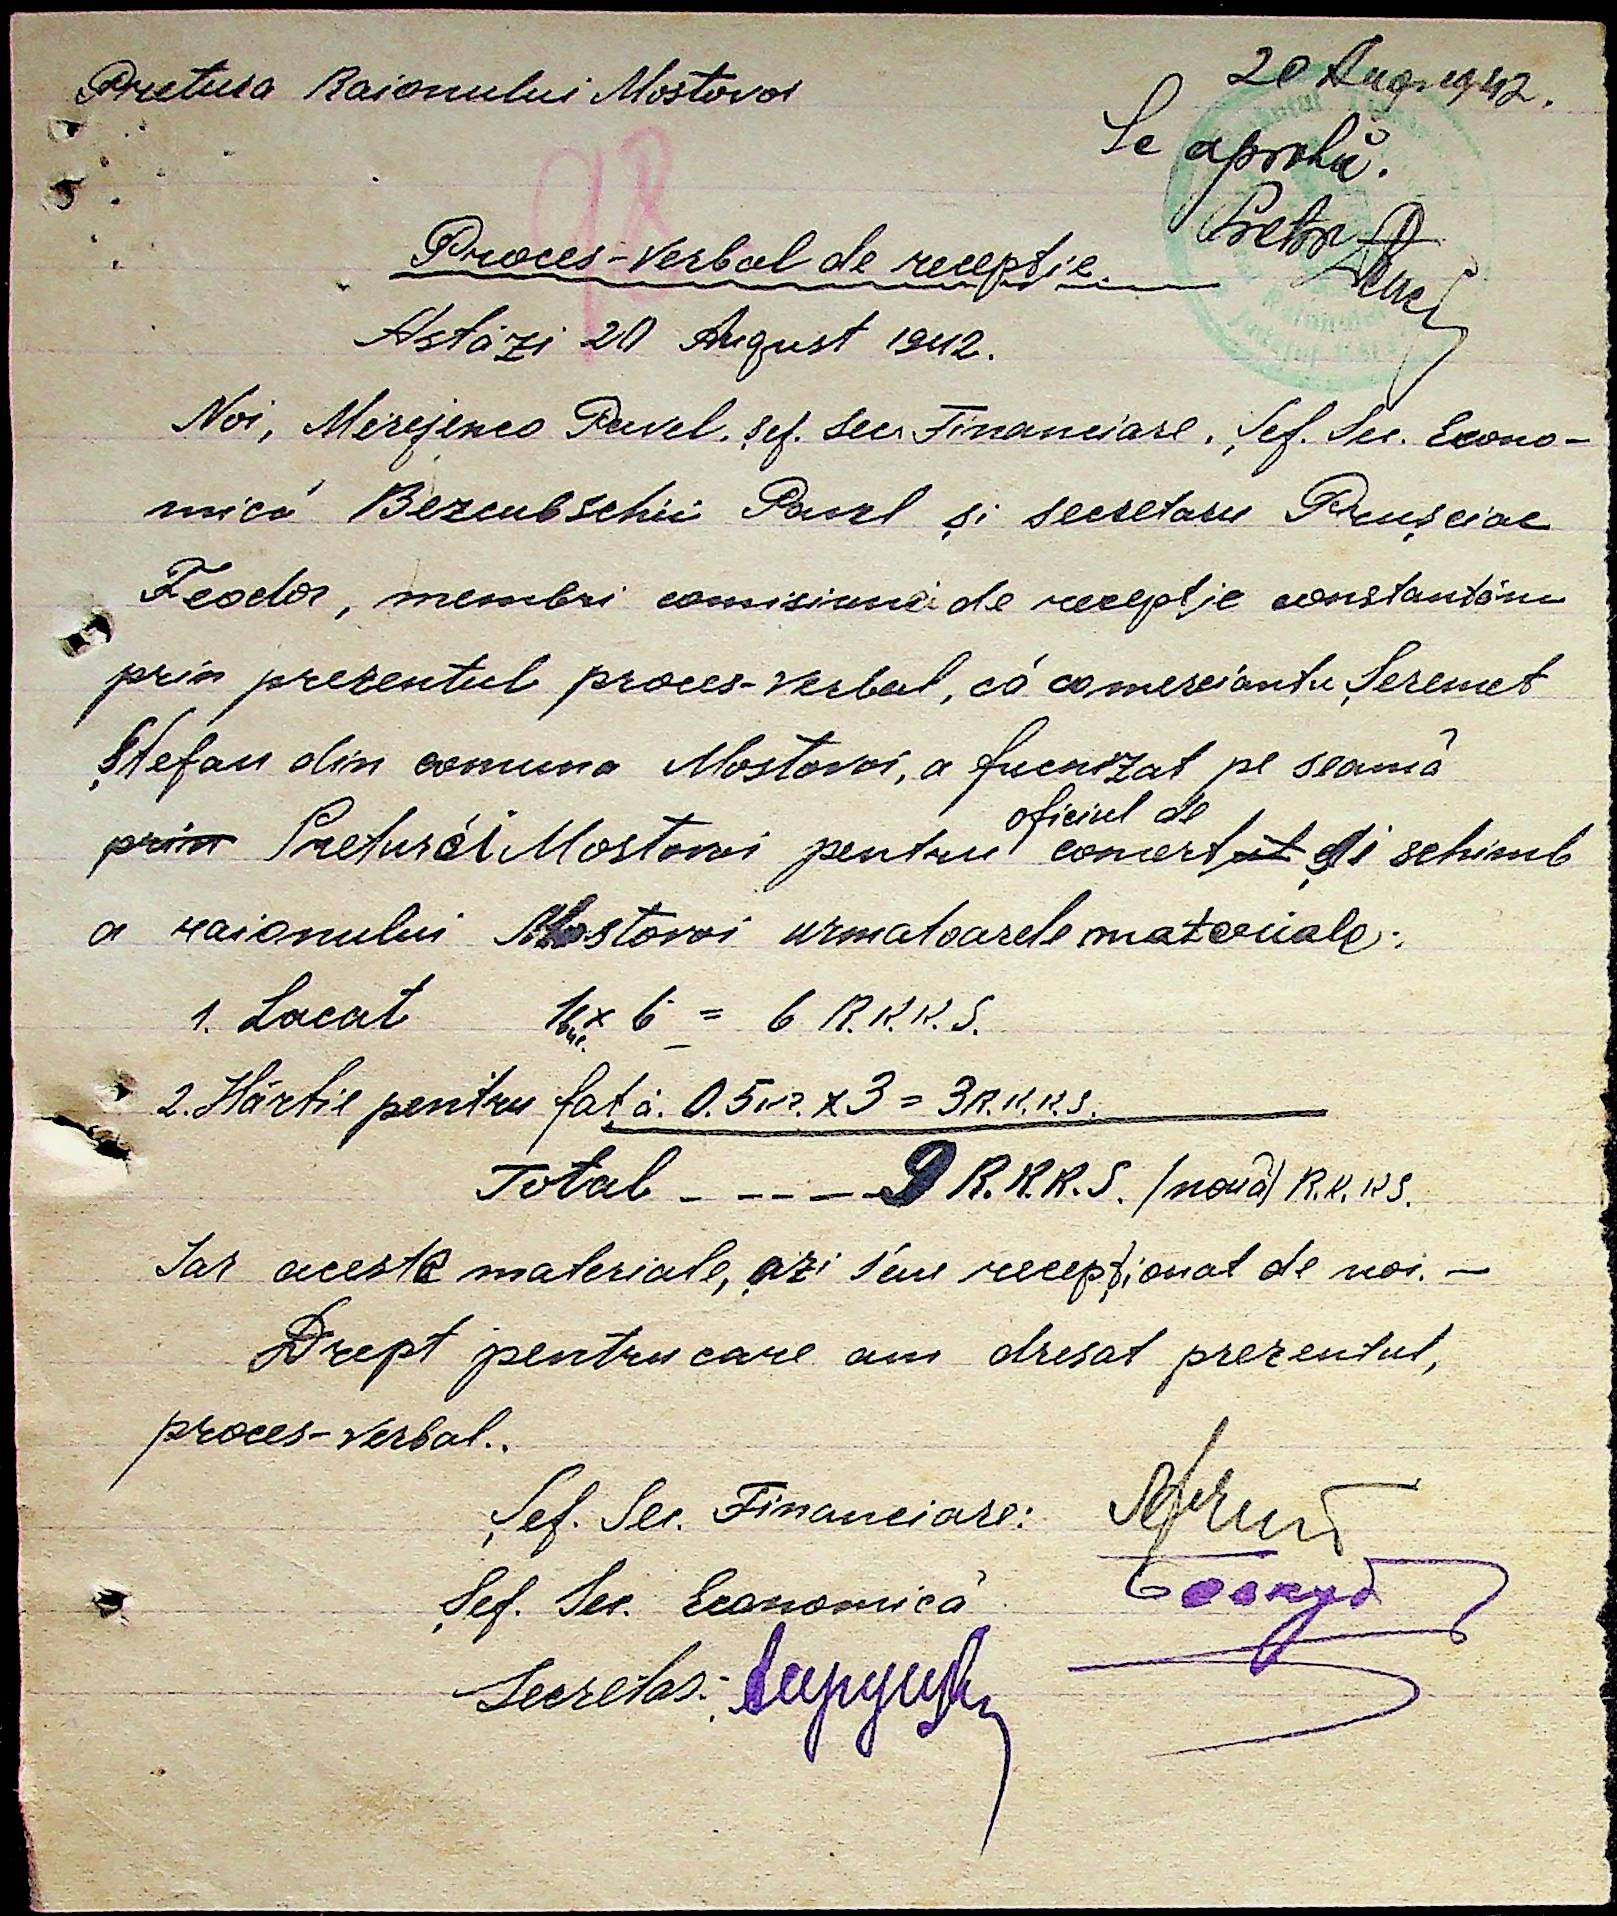 Pretura Raionului Mostovoi
20 Aug. 1942.
Se aprobă.
Pretor
98
Proces-Verbal de recepție.
Astăzi 20 August 1942.
Noi, Merejenco Pavel. șef. sec. Financiare, Șef. Sec. Econo-
mică Bezcubschii Pavel și secretaru Prușciac
Feodor, membri comisiunii de recepție constantăm
prin prezentul proces-verbal, că comerciantu Șeremet
Ștefan din comuna Mostovoi, a furnizat pe seamă
prin Preturăi Mostovoi pentru oficiul de comert și schimb
a raionului Mostovoi urmatoarele materiale:
1. Lacat 1 buc. x 6 = 6 R.K.K.S.
2. Hârtie pentru față. 0.5 x 3 = 3 R.K.K.S.
Total - - - - 9 R.K.K.S. /nouă/ R.K.KS.
Iar aceste materiale, azi s'au recepționat de noi. -
Drept pentru care am dresat prezentul,
proces-verbal..
Șef. Sec. Financiare:
Șef. Sec. Economică
Secretar: